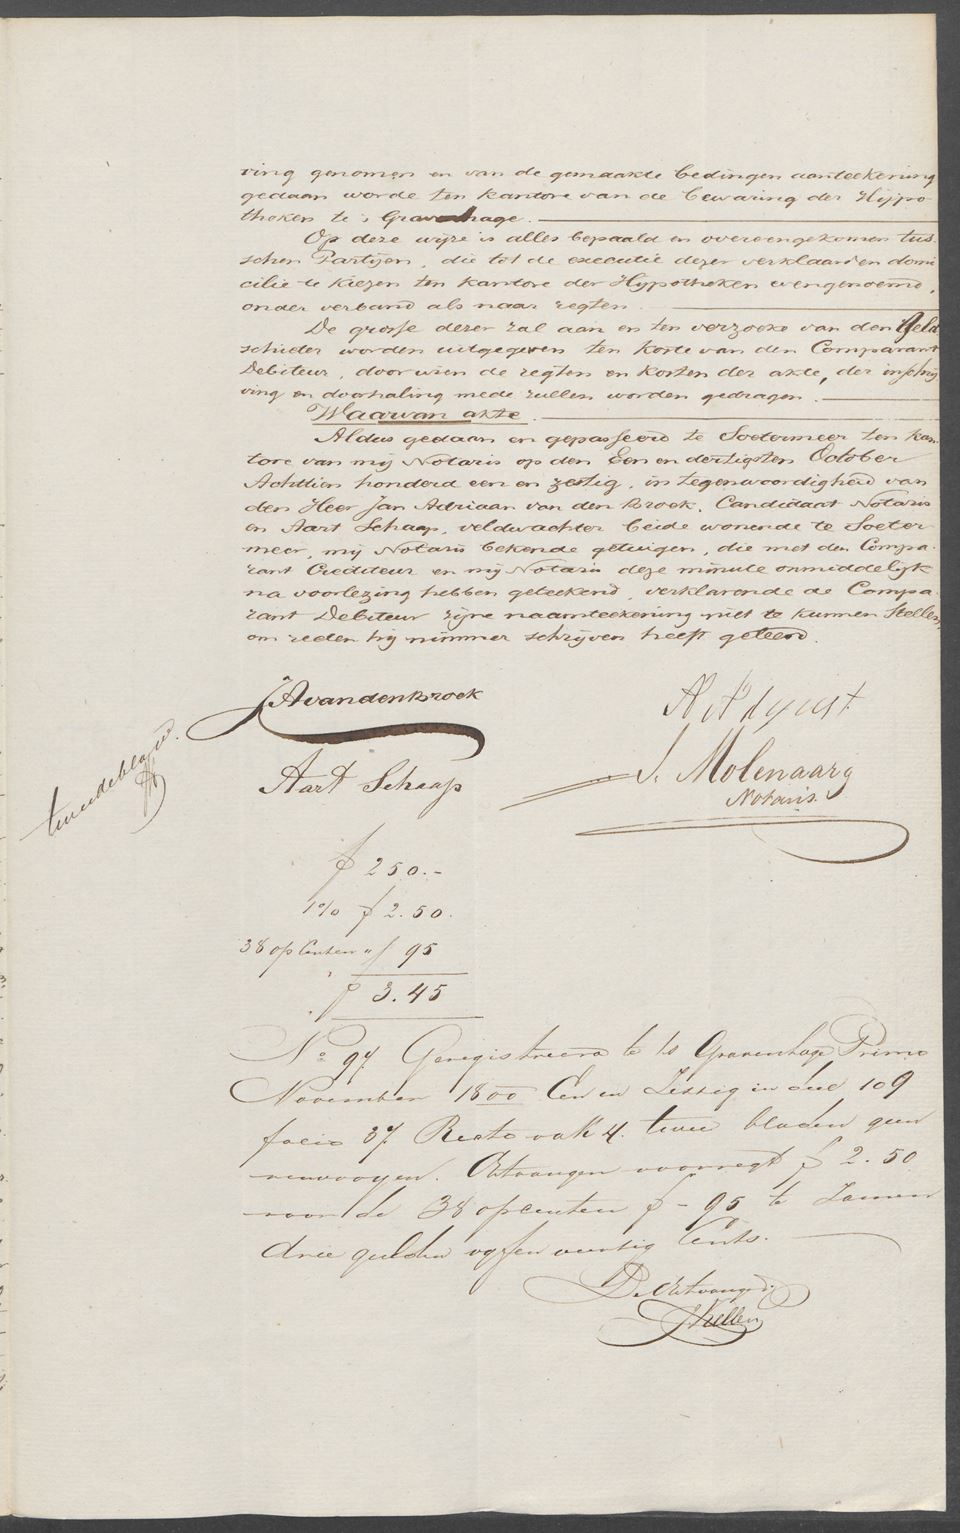 ving genomen en van de gemaakte bedingen aanteekening
gedaan worde ten kantore van de bewaring der Hijpo-
theken te 's Gravenhage.
Op deze wijze is alles bepaald en overeengekomen tus-
schen Partijen, die tot de executie dezer verklaarden domi
cilie te kiezen ten kantore der Hypotheken evengenoemd,
onder verband als naar regten.
De grosse dezer zal aan en ten verzoeke van den Geld
schieter worden uitgegeven ten koste van den Comparant
Debiteur, door wien de regten en kosten der akte, der inschrij
ving en doorhaling mede zullen worden gedragen.
Waarvan akte.
Aldus gedaan en gepasseerd te Soetermeer ten kan-
tore van mij Notaris op den Een en dertigsten October
Achttien honderd een en zestig, in tegenwoordigheid van
den Heer Jan Adriaan van den Broek, Candidaat Notaris
en Aart Schaap, veldwachter beide wonende te Soeter
meer, mij Notaris bekende getuigen, die met den Compa-
rant Crediteur en mij Notaris deze minute onmiddelijk
na voorlezing hebben geteekend, verklarende de Compa-
rant Debiteur zijne naamteekening niet te kunnen stellen,
om reden hij nimmer schrijven heeft geleerd.
JAvandenBroek
tweede blad.
Aart Schaap
J. Molenaar
Notaris.
f 250.-
1% f 2.50.
38 op Centen " f 95
f 3.45
No 97. Geregistreerd te 's Gravenhage Primo
November 1800 Een en Zestig in deel 109
folio 37. Recto vak 4. twee bladen geen
renvooyen. Ontvangen voor regt f 2.50
voor de 38 opcenten f - 95 te Zamen
drie gulden vyf en veertig Cents.
De Ontvanger